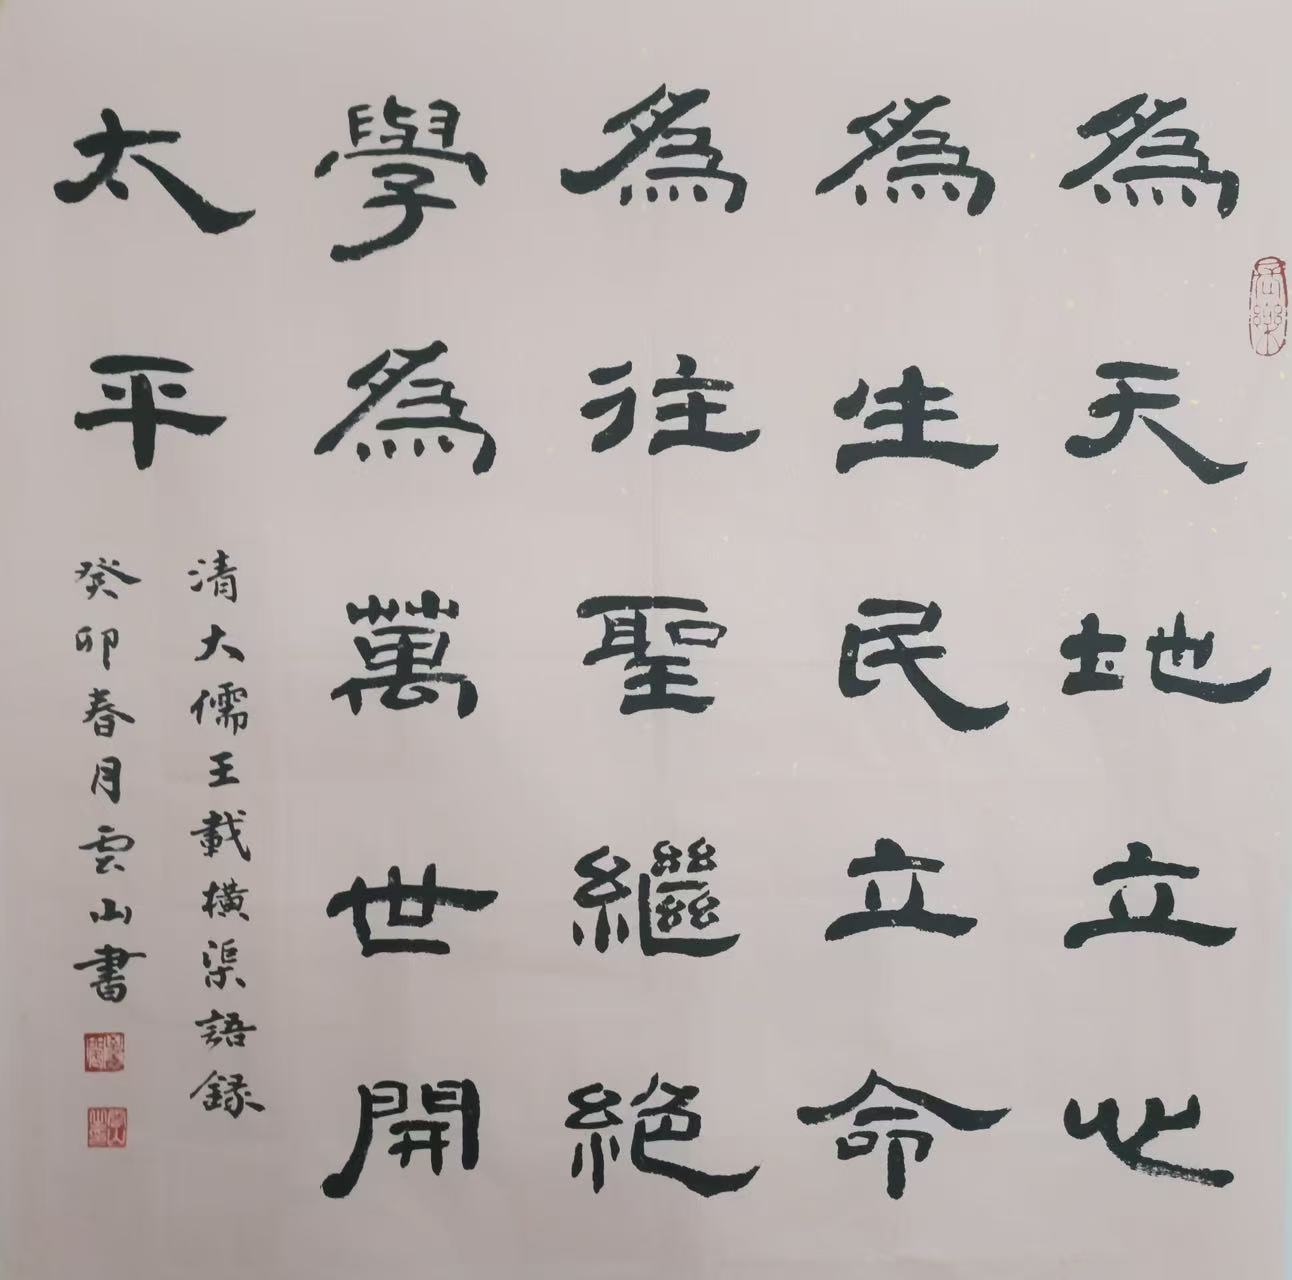 為天地立心
為生民立命
為往聖繼絕
學為萬世開
太平
清大儒王載橫渠語録
癸卯春月雲山書